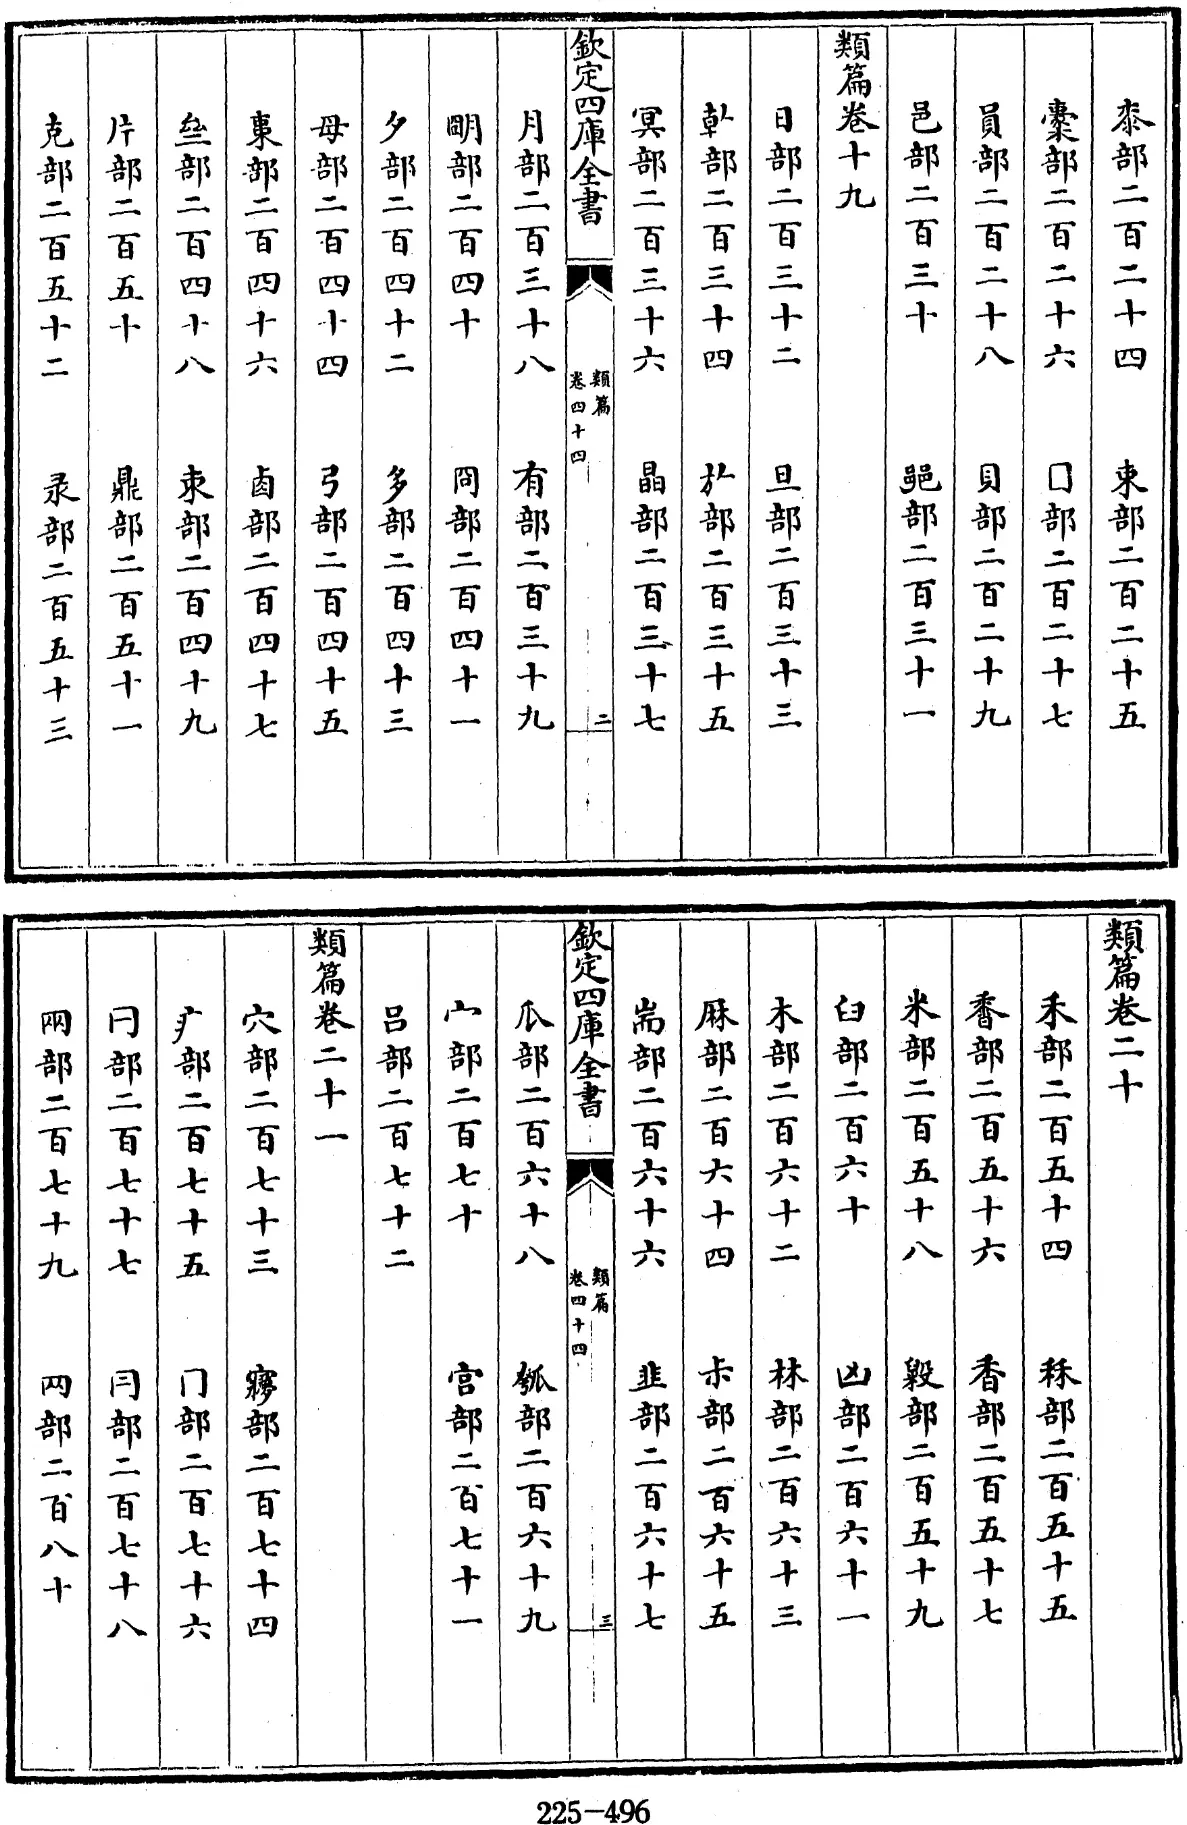 桼部二百二十四　束部二百二十五
㯻部二百二十六　囗部二百二十七
員部二百二十八　貝部二百二十九
邑部二百三十　𨛜部二百三十一
類篇卷十九
日部二百三十二　旦部二百三十三
倝部二百三十四　㫃部二百三十五
冥部二百三十六　晶部二百三十七
欽定四庫全書
類篇
卷四十四
二
月部二百三十八　有部二百三十九
朙部二百四十　囧部二百四十一
夕部二百四十二　多部二百四十三
毌部二百四十四　弓部二百四十五
東部二百四十六　卤部二百四十七
亝部二百四十八　朿部二百四十九
片部二百五十　鼎部二百五十一
克部二百五十二　录部二百五十三
類篇卷二十
禾部二百五十四　秝部二百五十五
黍部二百五十六　香部二百五十七
米部二百五十八　毇部二百五十九
臼部二百六十　凶部二百六十一
木部二百六十二　林部二百六十三
麻部二百六十四　尗部二百六十五
耑部二百六十六　韭部二百六十七
欽定四庫全書
類篇
卷四十四
三
瓜部二百六十八　瓠部二百六十九
宀部二百七十　宮部二百七十一
呂部二百七十二
類篇卷二十一
穴部二百七十三　㝱部二百七十四
疒部二百七十五　冂部二百七十六
冃部二百七十七　冃部二百七十八
㒳部二百七十九　网部二百八十
225-496